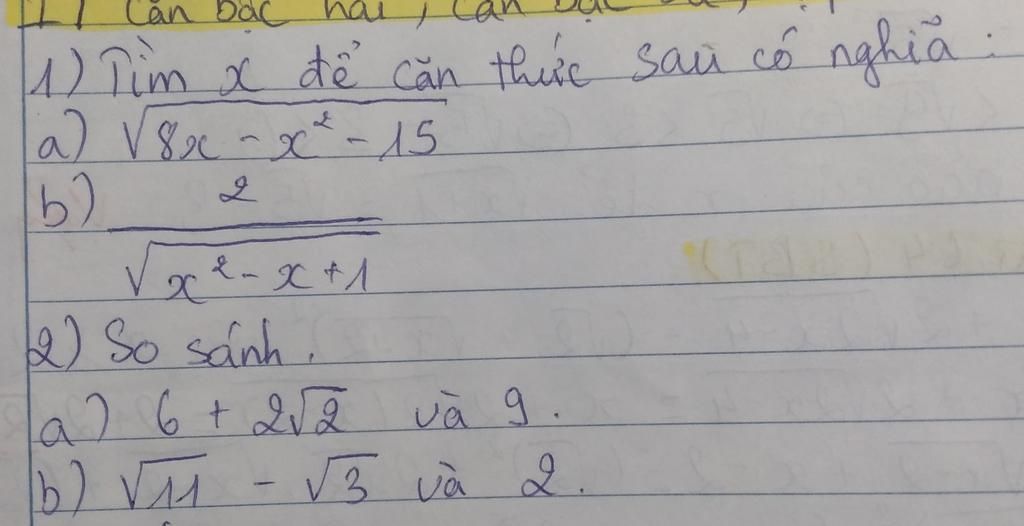 căn bậc hai, căn bậc
1) Tìm x để căn thức sau có nghĩa :
a) √(8x - x² - 15)
b) 2/√(x² - x + 1)
2) So sánh.
a) 6 + 2√2 và 9.
b) √11 - √3 và 2.